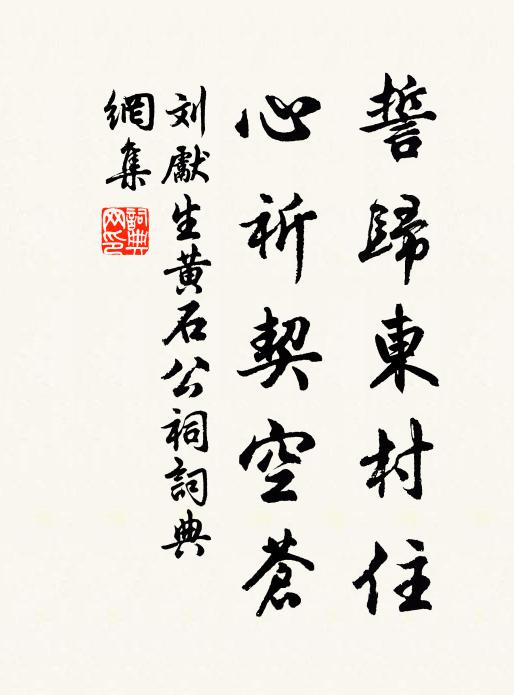 誓歸東村住
心祈契空蒼
刘獻生黄石公祠詞典
網集
詞典网印